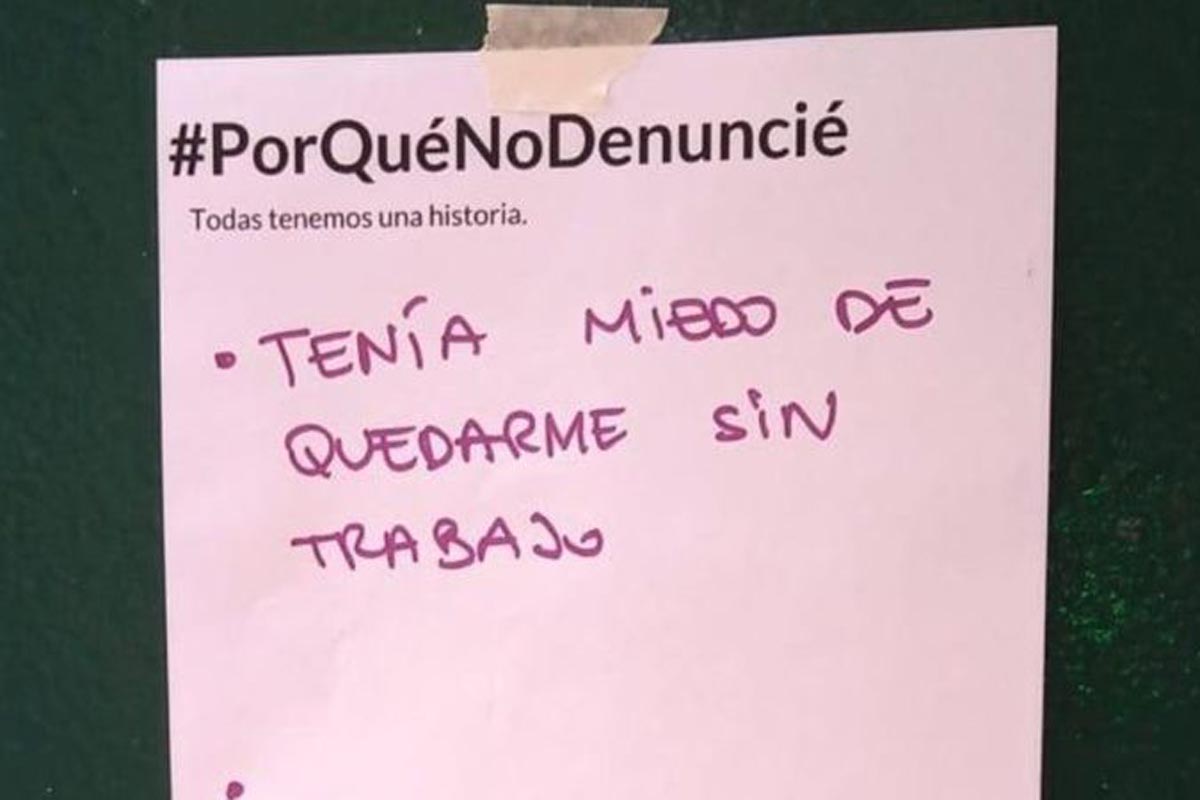 #PorQuéNoDenuncié
Todas tenemos una historia.
• TENÍA MIEDO DE
QUEDARME SIN
TRABAJO